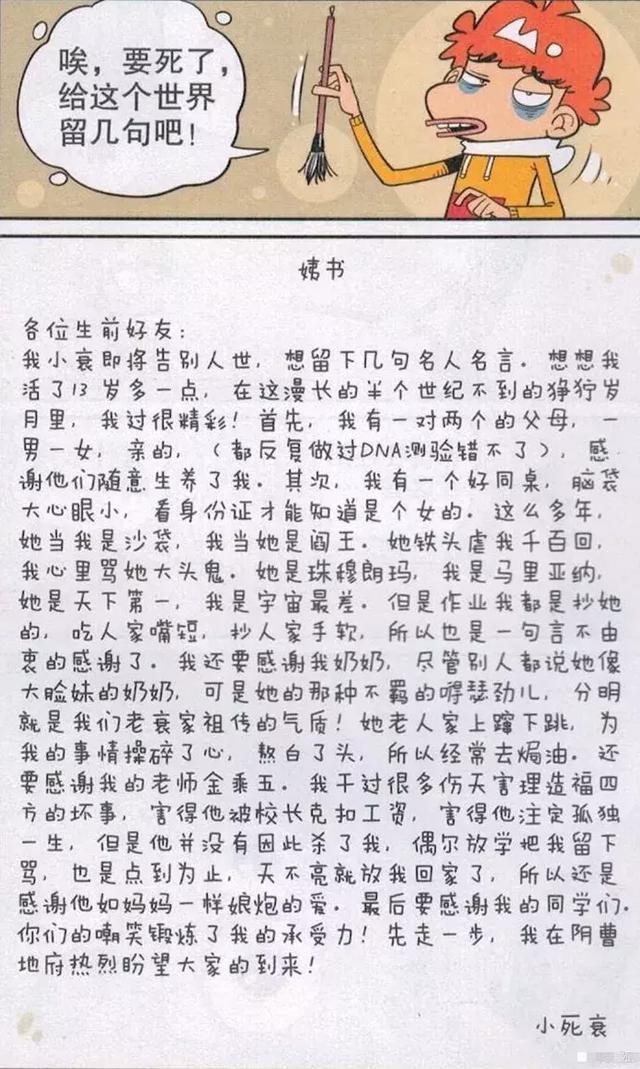 唉，要死了，
给这个世界
留几句吧！
姨书
各位生前好友：
我小衰即将告别人世，想留下几句名人名言。想想我
活了13岁多一点，在这漫长的半个世纪不到的狰狞岁
月里，我过很精彩！首先，我有一对两个的父母，一
男一女，亲的，（都反复做过DNA测验错不了），感
谢他们随意生养了我。其次，我有一个好同桌，脑袋
大心眼小，看身份证才能知道是个女的。这么多年，
她当我是沙袋，我当她是阎王。她铁头虐我千百回，
我心里骂她大头鬼。她是珠穆朗玛，我是马里亚纳，
她是天下第一，我是宇宙最差。但是作业我都是抄她
的，吃人家嘴短，抄人家手软，所以也是一句言不由
衷的感谢了。我还要感谢我奶奶，尽管别人都说她像
大脸妹的奶奶，可是她的那种不羁的嘚瑟劲儿，分明
就是我们老衰家祖传的气质！她老人家上蹿下跳，为
我的事情操碎了心，熬白了头，所以经常去焗油。还
要感谢我的老师金乘五。我干过很多伤天害理造福四
方的坏事，害得他被校长克扣工资，害得他注定孤独
一生，但是他并没有因此杀了我，偶尔放学把我留下
骂，也是点到为止，天不亮就放我回家了，所以还是
感谢他如妈妈一样娘炮的爱。最后要感谢我的同学们。
你们的嘲笑锻炼了我的承受力！先走一步，我在阴曹
地府热烈盼望大家的到来！
小死衰